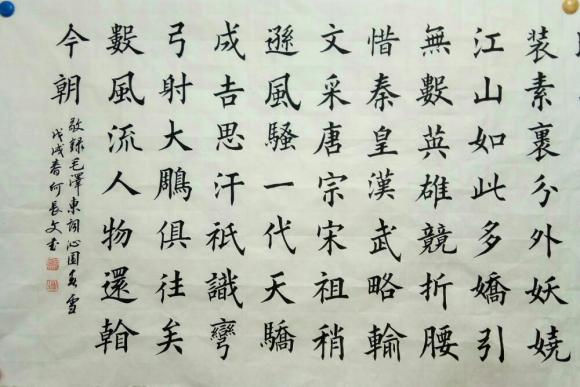 装素裹分外妖嬈
江山如此多嬌引
無數英雄競折腰
惜秦皇漢武略輸
文采唐宗宋祖稍
遜風騷一代天驕
成吉思汗祇識彎
弓射大鵰俱往矣
數風流人物還翰
今朝
敬録毛澤東詞沁園春雪
戊戌春何長文書